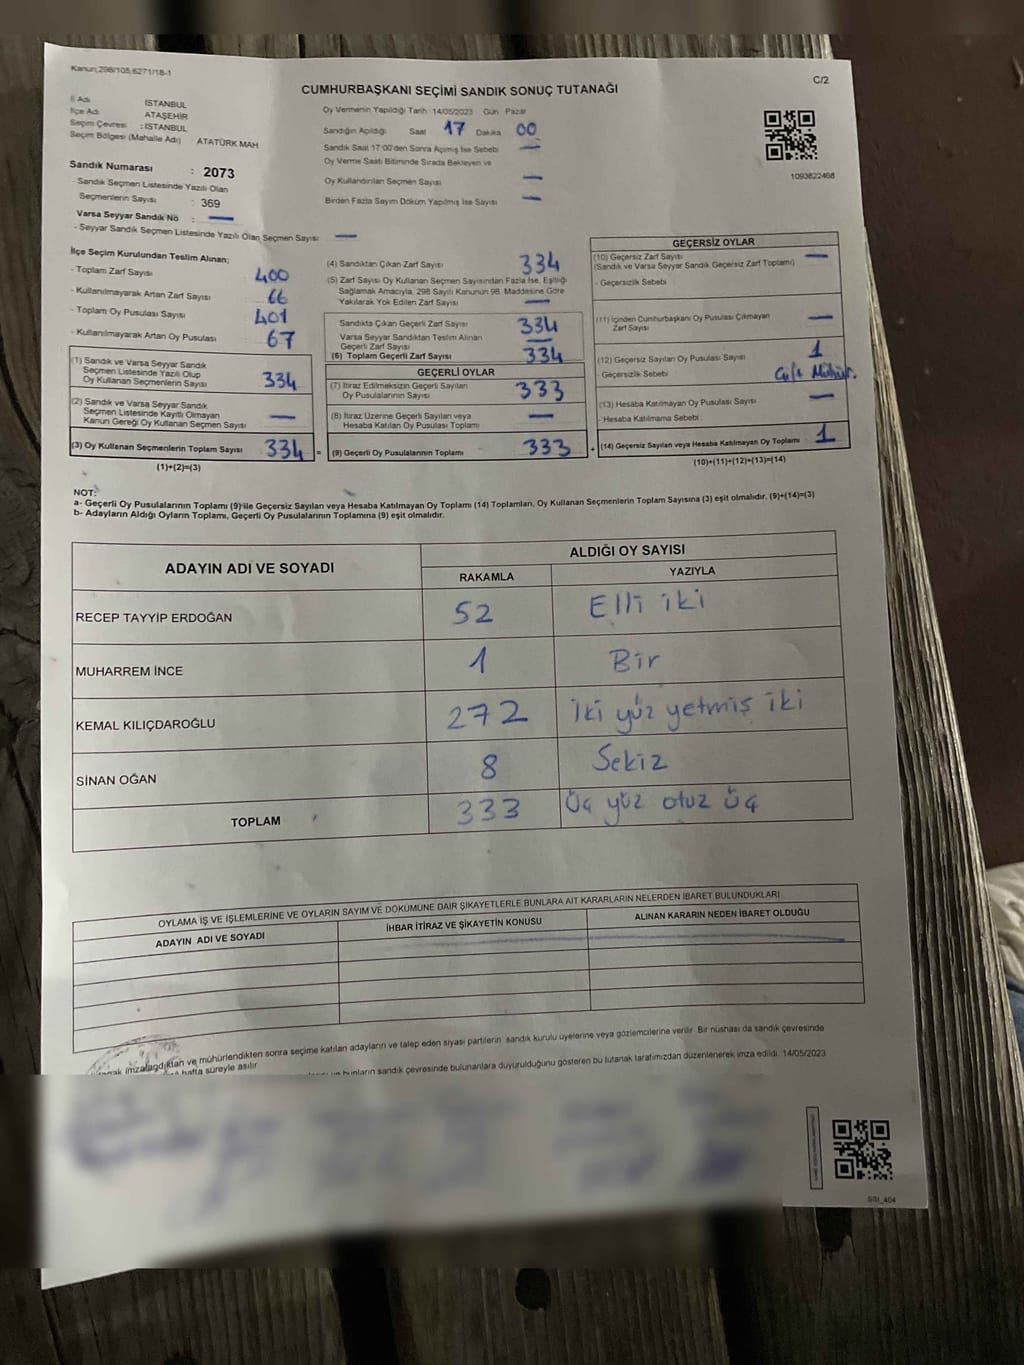 Kanun;298/105,6271/18-1
C/2
CUMHURBAŞKANI SEÇİMİ SANDIK SONUÇ TUTANAĞI
İl Adı : İSTANBUL
İlçe Adı : ATAŞEHİR
Seçim Çevresi : İSTANBUL
Seçim Bölgesi (Mahalle Adı) ATATÜRK MAH
Sandık Numarası : 2073
- Sandık Seçmen Listesinde Yazılı Olan
Seçmenlerin Sayısı : 369
Varsa Seyyar Sandık No : —
- Seyyar Sandık Seçmen Listesinde Yazılı Olan Seçmen Sayısı: —
Oy Vermenin Yapıldığı Tarih: 14/05/2023 Gün Pazar
Sandığın Açıldığı Saat 17 Dakika 00
Sandık Saat 17:00'den Sonra Açımış İse Sebebi —
Oy Verme Saati Bitiminde Sırada Bekleyen ve
Oy Kullandırılan Seçmen Sayısı —
Birden Fazla Sayım Döküm Yapılmış İse Sayısı —
1093822468
İlçe Seçim Kurulundan Teslim Alınan;
- Toplam Zarf Sayısı 400
- Kullanılmayarak Artan Zarf Sayısı 66
- Toplam Oy Pusulası Sayısı 401
- Kullanılmayarak Artan Oy Pusulası 67
(1) Sandık ve Varsa Seyyar Sandık
Seçmen Listesinde Yazılı Olup
Oy Kullanan Seçmenlerin Sayısı 334
(2) Sandık ve Varsa Seyyar Sandık
Seçmen Listesinde Kayıtlı Olmayan
Kanun Gereği Oy Kullanan Seçmen Sayısı —
(3) Oy Kullanan Seçmenlerin Toplam Sayısı 334 =
(1)+(2)=(3)
(4) Sandıktan Çıkan Zarf Sayısı 334
(5) Zarf Sayısı Oy Kullanan Seçmen Sayısından Fazla İse, Eşitliği
Sağlamak Amacıyla, 298 Sayılı Kanunun 98. Maddesine Göre
Yakılarak Yok Edilen Zarf Sayısı —
Sandıkta Çıkan Geçerli Zarf Sayısı 334
Varsa Seyyar Sandıktan Teslim Alınan
Geçerli Zarf Sayısı —
(6) Toplam Geçerli Zarf Sayısı 334
GEÇERLİ OYLAR
(7) İtiraz Edilmeksizin Geçerli Sayılan
Oy Pusulalarının Sayısı 333
(8) İtiraz Üzerine Geçerli Sayılan veya
Hesaba Katılan Oy Pusulası Toplamı —
(9) Geçerli Oy Pusulalarının Toplamı 333 +
GEÇERSİZ OYLAR
(10) Geçersiz Zarf Sayısı —
(Sandık ve Varsa Seyyar Sandık Geçersiz Zarf Toplamı)
- Geçersizlik Sebebi
(11) İçinden Cumhurbaşkanı Oy Pusulası Çıkmayan
Zarf Sayısı —
(12) Geçersiz Sayılan Oy Pusulası Sayısı 1
- Geçersizlik Sebebi Çift Mühür.
(13) Hesaba Katılmayan Oy Pusulası Sayısı —
- Hesaba Katılmama Sebebi
(14) Geçersiz Sayılan veya Hesaba Katılmayan Oy Toplamı 1
(10)+(11)+(12)+(13)=(14)
NOT:
a- Geçerli Oy Pusulalarının Toplamı (9)'ile Geçersiz Sayılan veya Hesaba Katılmayan Oy Toplamı (14) Toplamları, Oy Kullanan Seçmenlerin Toplam Sayısına (3) eşit olmalıdır. (9)+(14)=(3)
b- Adayların Aldığı Oyların Toplamı, Geçerli Oy Pusulalarının Toplamına (9) eşit olmalıdır.
ADAYIN ADI VE SOYADI
ALDIĞI OY SAYISI
RAKAMLA YAZIYLA
RECEP TAYYİP ERDOĞAN 52 Elli iki
MUHARREM İNCE 1 Bir
KEMAL KILIÇDAROĞLU 272 İki yüz yetmiş iki
SİNAN OĞAN 8 Sekiz
TOPLAM 333 Üç yüz otuz üç
OYLAMA İŞ VE İŞLEMLERİNE VE OYLARIN SAYIM VE DÖKÜMÜNE DAİR ŞİKAYETLERLE BUNLARA AİT KARARLARIN NELERDEN İBARET BULUNDUKLARI
ADAYIN ADI VE SOYADI İHBAR İTİRAZ VE ŞİKAYETİN KONUSU ALINAN KARARIN NEDEN İBARET OLDUĞU
imzalandıktan ve mühürlendikten sonra seçime katılan adayların ve talep eden siyasi partilerin sandık kurulu üyelerine veya gözlemcilerine verilir. Bir nüshası da sandık çevresinde
hafta süreyle asılır
bunların sandık çevresinde bulunanlara duyurulduğunu gösteren bu tutanak tarafımızdan düzenlenerek imza edildi. 14/05/2023
SSI_404